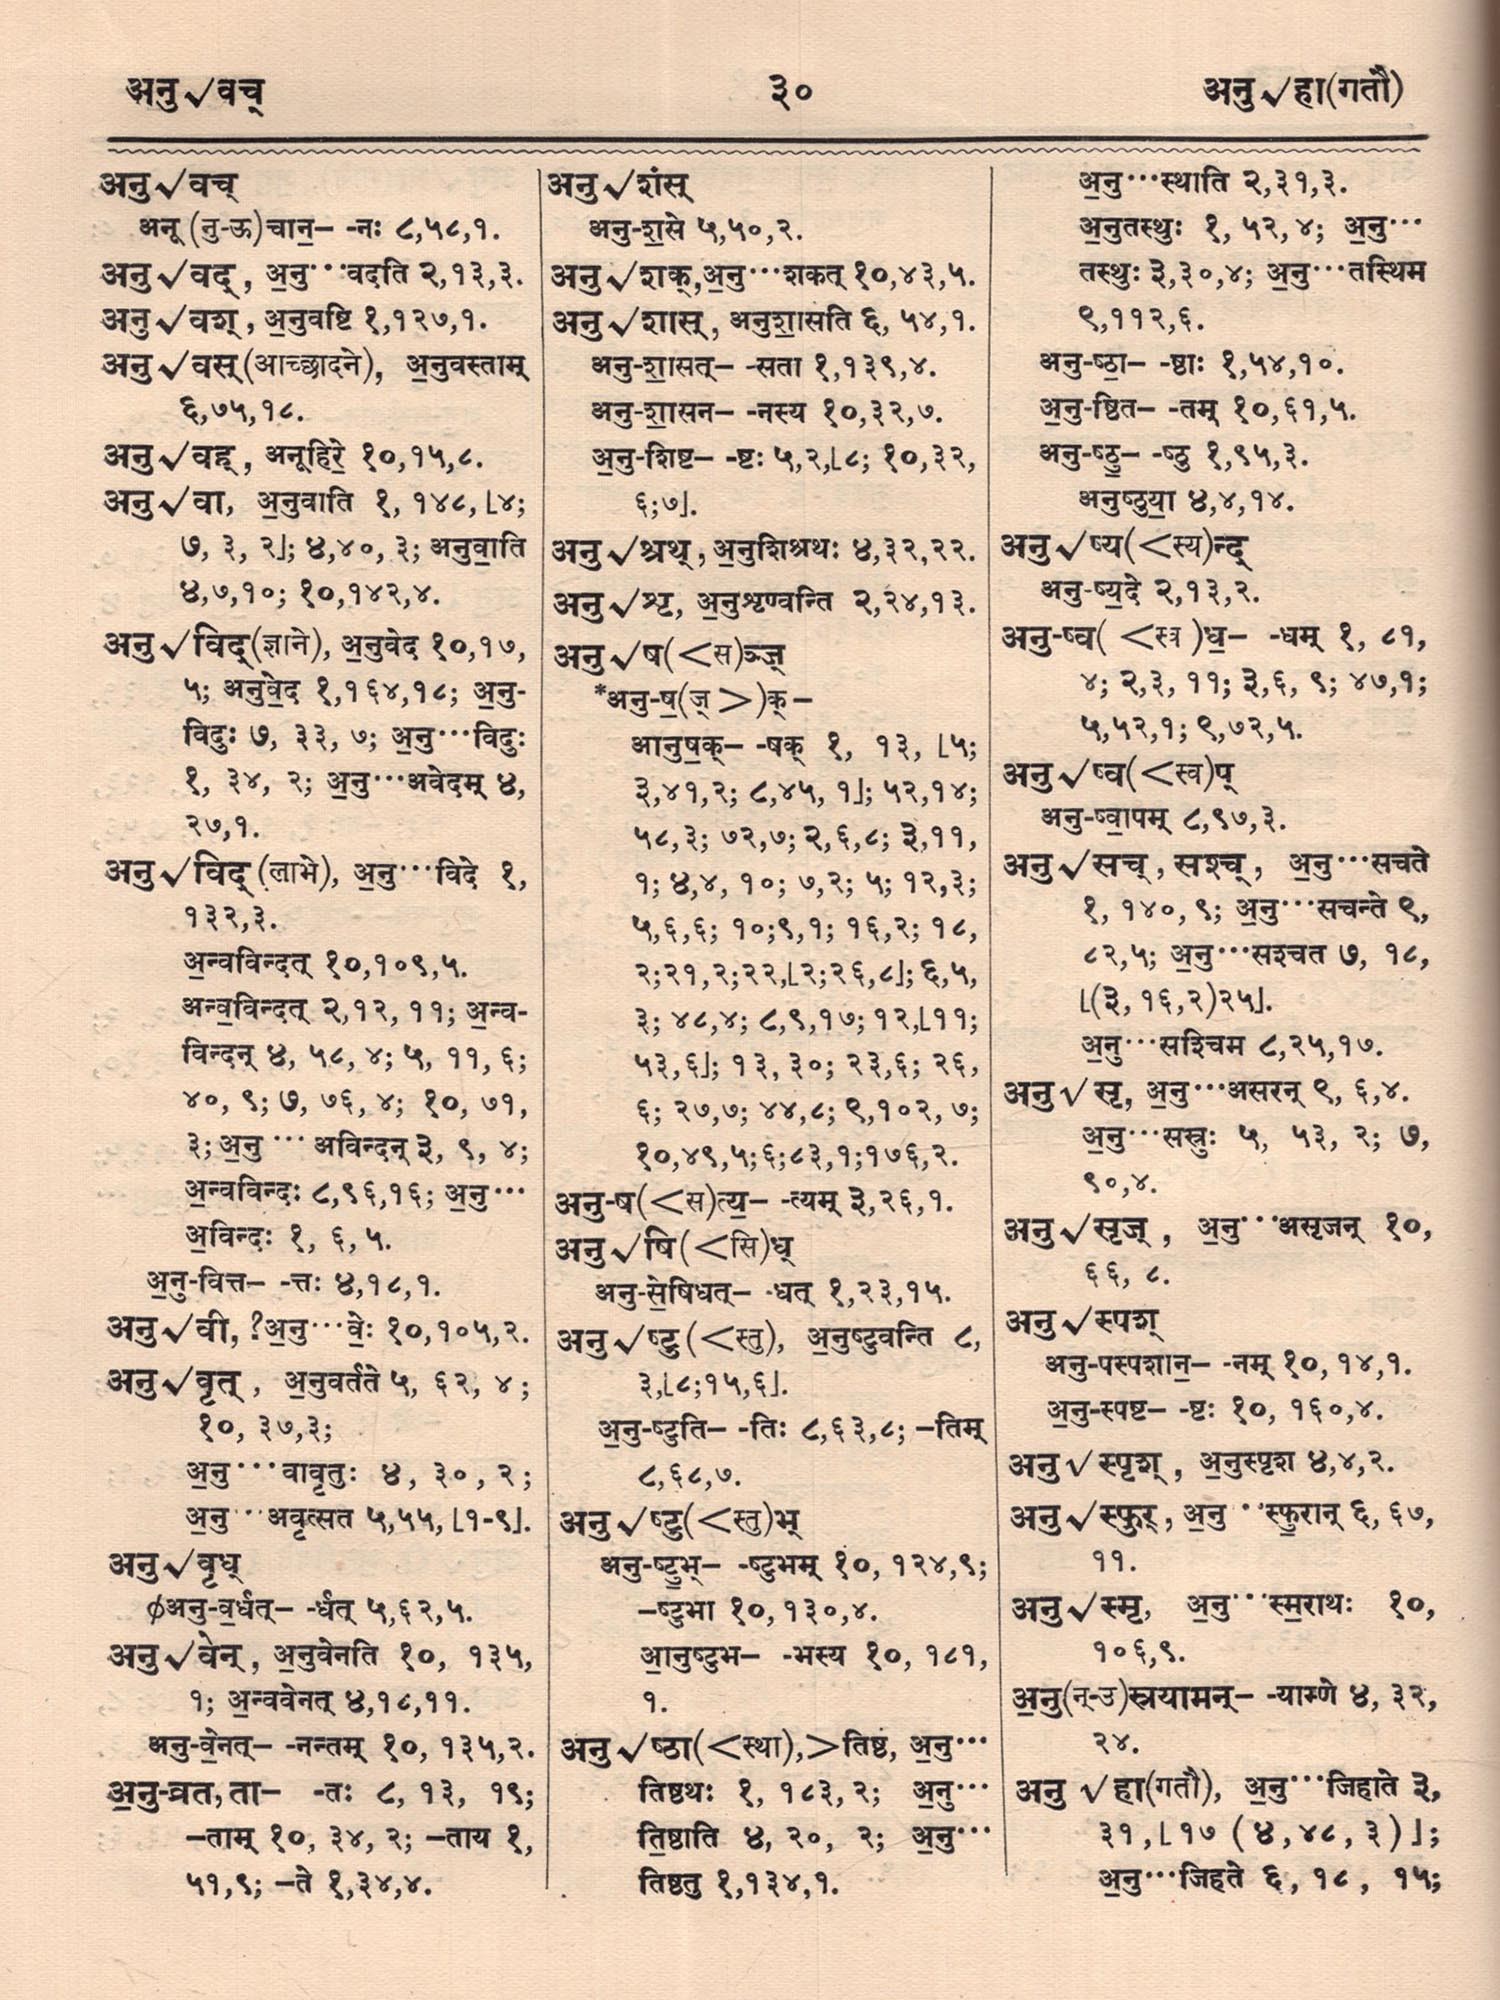 अनु√वच्
३०
अनु√हा(गतौ)
अनु√वच्
अनू(नु-ऊ)चा॒न॒– -नः ८,५८,१.
अनु√वद्, अ॒नु···वदति २,१३,३.
अनु√वश्, अ॒नुवष्टि १,१२७,१.
अनु√वस्(आच्छादने), अ॒नुवस्ताम्
६,७५,१८.
अनु√वह्, अनूहि॒रे॒ १०,१५,८.
अनु√वा, अ॒नुवाति १, १४८,⌊४;
७, ३, २⌋; ४,४०, ३; अनुवा॒ति
४,७,१०; १०,१४२,४.
अनु√विद्(ज्ञाने), अ॒नुवेद १०,१७,
५; अनुवे॒द १,१६४,१८; अ॒नु-
विदुः ७, ३३, ७; अ॒नु···विदुः
१, ३४, २; अ॒नु···अवेदम् ४,
२७,१.
अनु√विद् (लाभे), अ॒नु···विदे १,
१३२,३.
अ॒न्वविन्दत् १०,१०९,५.
अन्व॒विन्दत् २,१२, ११; अ॒न्व-
विन्दन् ४, ५८, ४; ५, ११, ६;
४०, ९; ७, ७६, ४; १०, ७१,
३; अ॒नु ··· अविन्दन् ३, ९, ४;
अ॒न्वविन्दः ८,९६,१६; अ॒नु···
अ॒विन्दः १, ६, ५.
अ॒नु-वित्त– -त्तः ४,१८,१.
अनु√वी, ?अ॒नु···वेः॒ १०,१०५,२.
अनु√वृत्, अ॒नुवर्तते ५, ६२, ४;
१०, ३७,३;
अ॒नु ···वावृतुः ४, ३०, २;
अ॒नु ···अवृत्सत ५,५५, ⌊१-९⌋.
अनु√वृध्
ϕअनु-व॒र्धत्– -र्धत् ५,६२,५.
अनु√वेन्, अ॒नुवेनति १०, १३५,
१; अ॒न्ववेनत् ४,१८,११.
अनु-वे॒नत्– -नन्तम् १०, १३५,२.
अ॒नु-व्रत,ता– -तः ८, १३, १९;
–ताम् १०, ३४, २; –ताय १,
५१,९; –ते १,३४,४.
अनु√शंस्
अनु-श॒से ५,५०,२.
अनु√शक्,अ॒नु···शकत् १०,४३,५.
अनु√शास्, अनुशा॒सति ६, ५४,१.
अनु-शा॒सत्– -सता १,१३९,४.
अनु-शा॒सन– -नस्य १०,३२,७.
अ॒नु-शिष्ट– -ष्टः ५,२,⌊८; १०,३२,
६;७⌋.
अनु√श्रथ्, अ॒नुशिश्रथः ४,३२,२२.
अनु√श्रृ, अ॒नुशृण्वन्ति २,२४,१३.
अनु√ष(<स)ञ्ज्
*अनु-ष॒(ज् >)क्–
आनुष॒क्– -षक् १, १३, ⌊५;
३,४१,२; ८,४५, १⌋; ५२,१४;
५८,३; ७२,७; २,६,८; ३,११,
१; ४,४, १०; ७,२; ५; १२,३;
५,६,६; १०;९,१; १६,२; १८,
२;२१,२;२२,⌊२;२६,८⌋; ६,५,
३; ४८,४; ८,९,१७; १२,⌊११;
५३,६⌋; १३, ३०; २३,६; २६,
६; २७,७; ४४,८; ९,१०२, ७;
१०,४९,५;६;८३,१;१७६,२.
अनु-ष(<स)त्य॒– -त्यम् ३,२६,१.
अनु√षि(<सि)ध्
अनु-से॒षिधत्– -धत् १,२३,१५.
अनु√ष्टु(<स्तु), अ॒नुष्टुवन्ति ८,
३,⌊८;१५,६⌋.
अ॒नु-ष्टुति– -तिः ८,६३,८; –तिम्
८,६८,७.
अनु√ष्टु(<स्तु)भ्
अनु-ष्टु॒भ्– -ष्टुभम् १०, १२४,९;
–ष्टुभा १०, १३०,४.
आ॒नुष्टुभ– -भस्य १०, १८१,
१.
अनु√ष्ठा(<स्था),>तिष्ठ, अ॒नु···
तिष्ठथः १, १८३, २; अ॒नु···
ति॒ष्ठाति ४, २०, २; अ॒नु···
तिष्ठतु १,१३४,१.
अ॒नु···स्थाति २,३१,३.
अ॒नुतस्थुः १, ५२, ४; अ॒नु···
तस्थुः ३,३०,४; अ॒नु···तस्थिम
९,११२,६.
अनु-ष्ठा॒– -ष्ठाः १,५४,१०.
अ॒नु-ष्ठित– -तम् १०,६१,५.
अनु-ष्ठु॒– -ष्ठु १,९५,३.
अनुष्ठुया॒ ४,४,१४.
अनु√ष्य(<स्य)न्द्
अनु-ष्य॒दे २,१३,२.
अनु-ष्व( <स्व )ध॒– -धम् १, ८१,
४; २,३, ११; ३,६, ९; ४७,१;
५,५२,१; ९,७२,५.
अनु√ष्व(<स्व)प्
अनु-ष्वा॒पम् ८,९७,३.
अनु√सच्, सश्च्, अ॒नु···सचते
१, १४०, ९; अ॒नु···सचन्ते ९,
८२,५; अ॒नु···सश्चत ७, १८,
⌊(३, १६,२)२५⌋.
अ॒नु···सश्चिम ८,२५,१७.
अनु√सृ, अ॒नु···असरन् ९, ६,४.
अ॒नु···सस्रुः ५, ५३, २; ७,
९०,४.
अनु√सृज्, अ॒नु···असृजन् १०,
६६, ८.
अनु√स्पश्
अनु-पस्पशान॒– -नम् १०, १४,१.
अ॒नु-स्पष्ट– -ष्टः १०, १६०,४.
अनु√स्पृश्, अ॒नुस्पृश ४,४,२.
अनु√स्फुर्, अ॒नु ···स्फु॒रान् ६, ६७,
११.
अनु√स्मृ, अ॒नु···स्म॒राथः १०,
१०६,९.
अ॒नु(न्-उ)स्रयामन्– -याम्णे ४, ३२,
२४.
अनु√हा(गतौ), अ॒नु···जिहाते ३,
३१,⌊१७ (४,४८,३)⌋;
अ॒नु···जिहते ६, १८, १५;